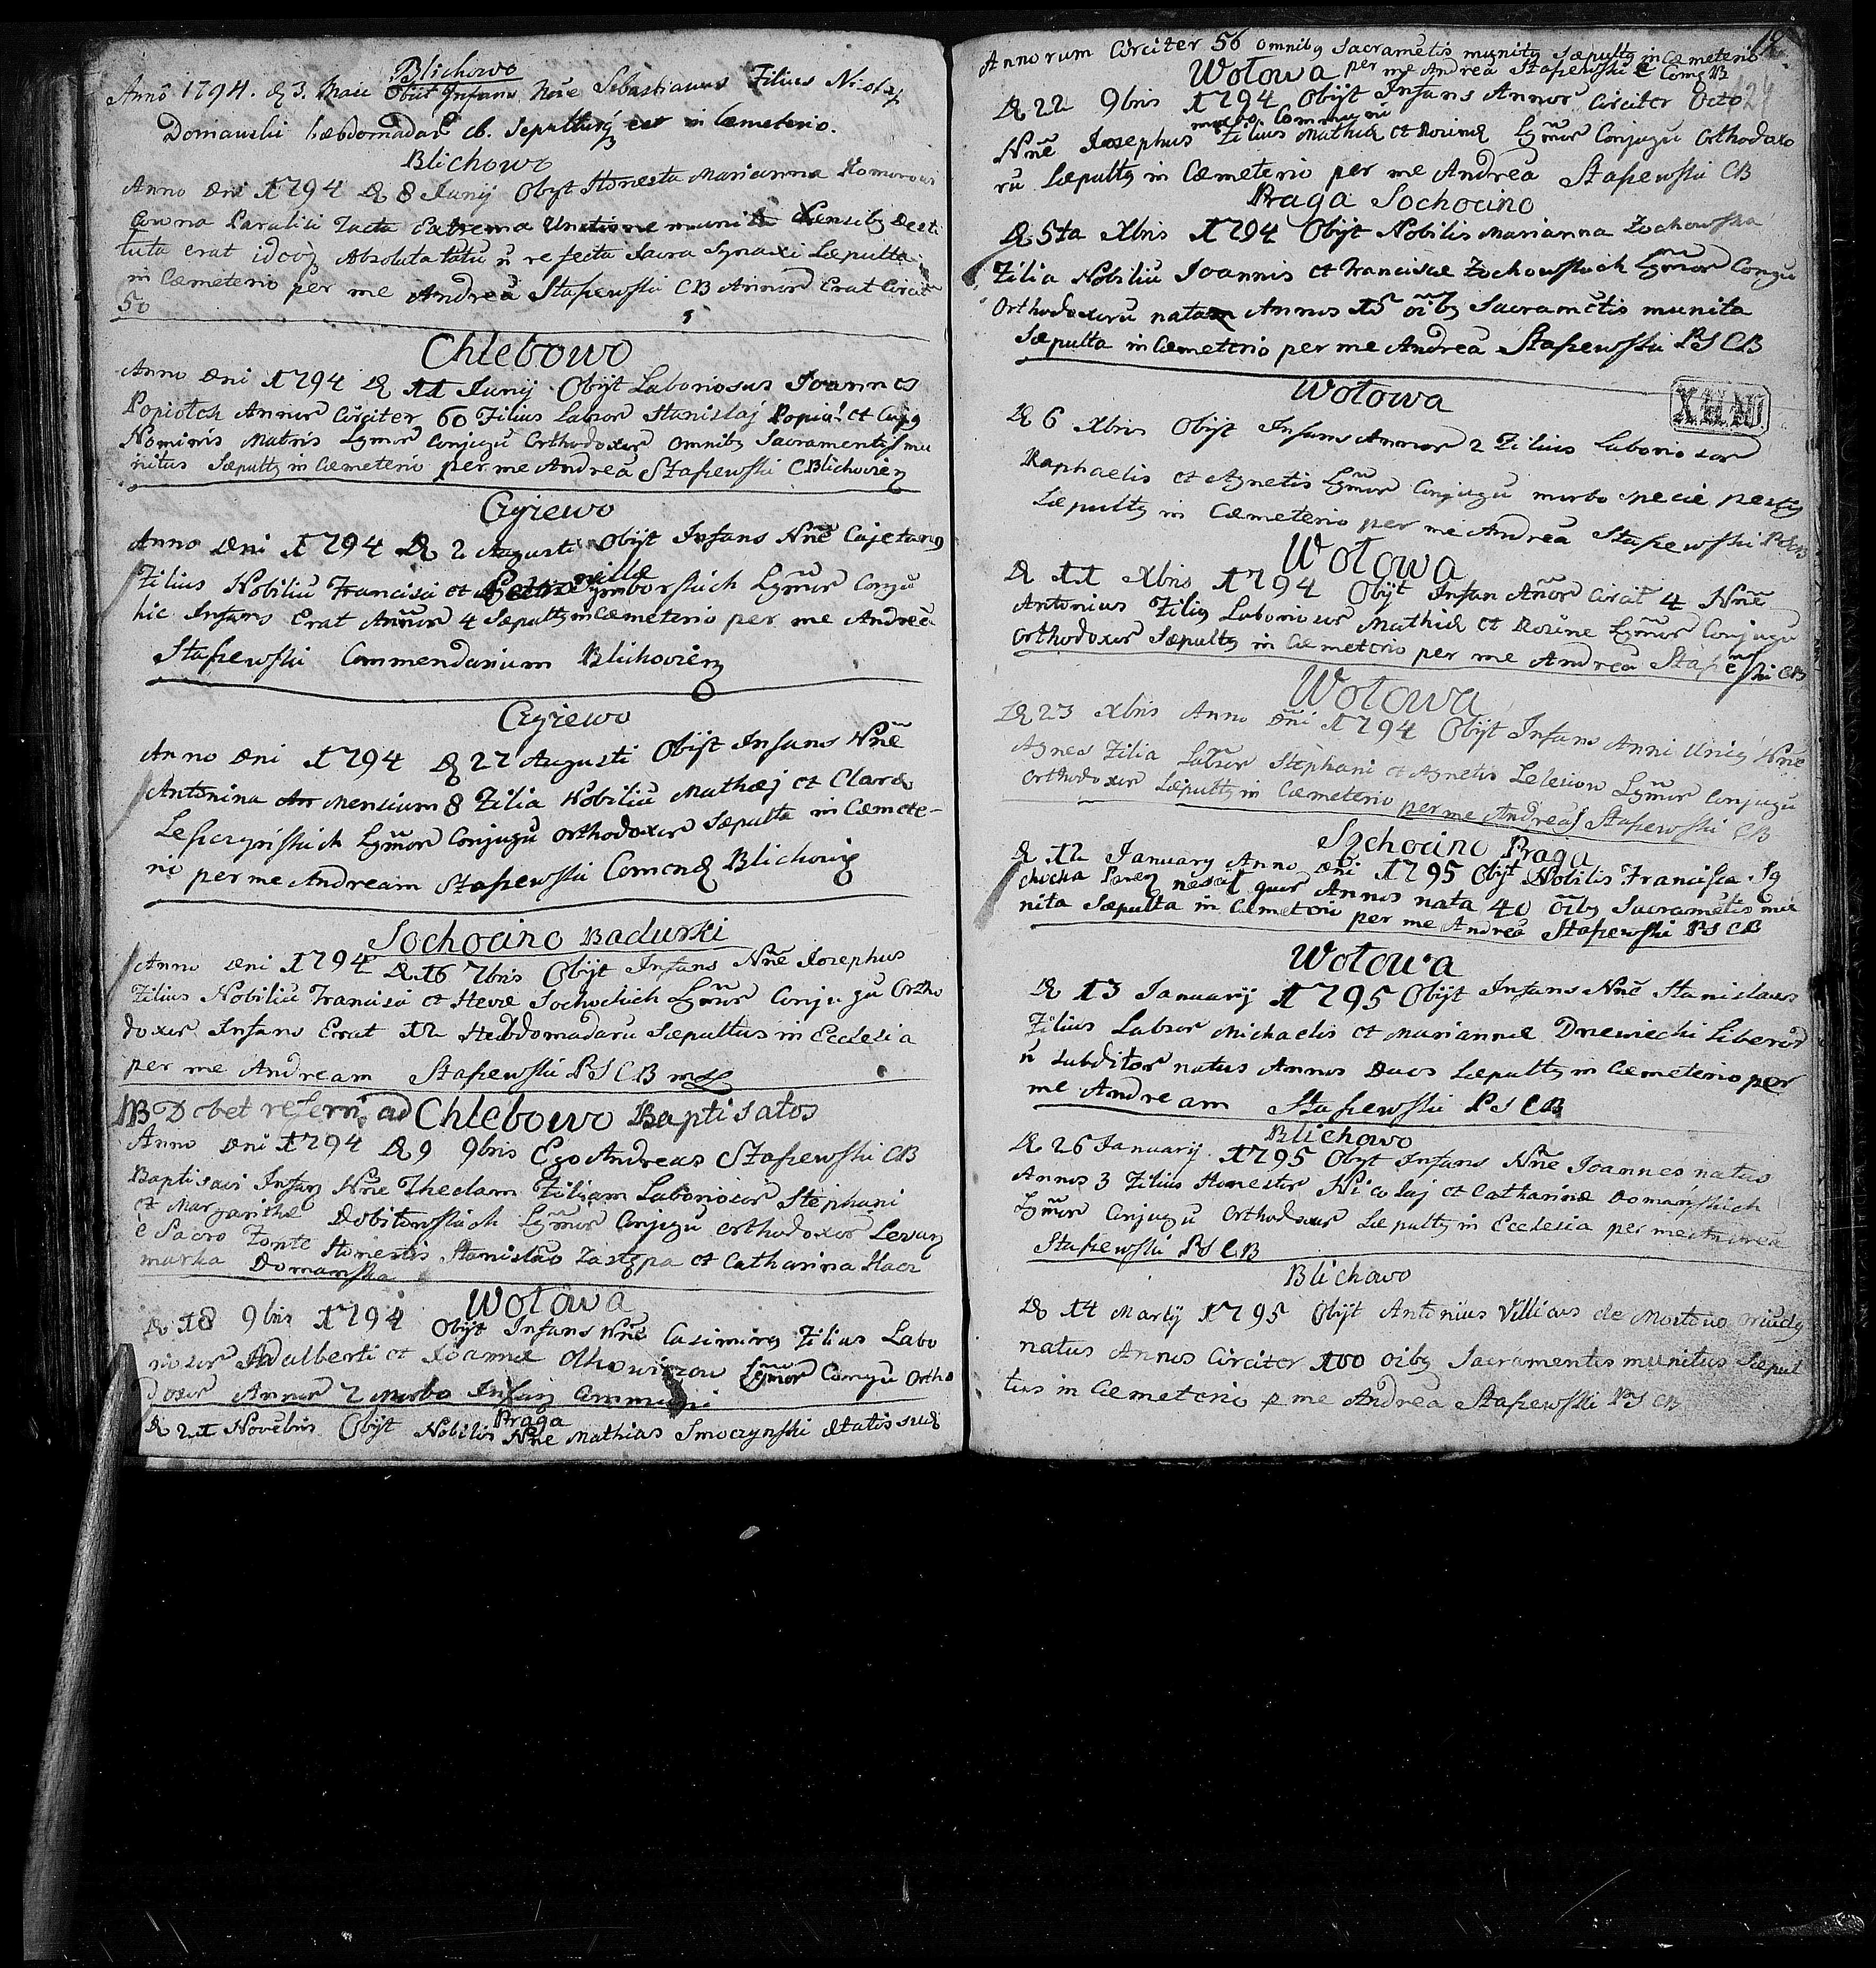 Blichowo
Anno 1794. d. 3. Maii Obiit Infans Nõe Sebastianus Filius Nicolaj
Domanski hebdomadar sepultus est in Cæmeterio.
Blichowo
Anno Dni 1794 D 8 Junij Obijt Honesta Marianna Komorow
Extrema Unctione munita sensibg Desti
tuta erat Absoluta refecta sacra Synaxi Sæpulta
in Cæmeterio per me Andreã Stapewski CB Annor Erat Circit
50
Chlebowo
Anno Dni 1794 D 11 Junij Obijt Laboriosus Joannes
Popiołek Annor Circiter 60 Filius Labor Stanislaj Popio! et Cujg
Nominis Matris Lgmor Conjugũ Orthodoxor omnibg Sacramentis mu
nitus Sæpultg in Cæmeterio per me Andreã Stapewski C Blichovien
Cgiewo
Anno Dni 1794 D 2 Augusti Obijt Infans Nñe Cajetang
Filius Nobiliũ Francisci et Lgmor Congũ
hic Infans Erat Annor 4 Sæpultg in Cæmeterio per me Andreã
Stapewski Commendarium Blichovien
Cgiewo
Anno Dni 1794 D 27 Augusti Obijt Infans Nñe
Antonina Mensium 8 Filia Nobiliũ Mathæj et Claræ
Leszczynskich Lgmor Conjugũ Orthodoxor Sæpulta in Cæmete-
rio per me Andream Stapewski Comend Blichovien
Sochocino Badurki
Anno Dni 1794 D 16 7bris Obijt Infans Nñe Josephus
Filius Nobiliũ Francisci et Hevæ Sochockich Lgmor Conjugũ Ortho
doxor Infans Erat 12 Hebdomadarũ Sæpultus in Ecclesia
per me Andream Stapewski PS CB
NB Debet referri ad Chlebowo Baptisatos
Anno Dni 1794 D 9 9bris Ego Andreas Stapewski CB
Baptisavi Infan Nñe Theclam Filiam Laborioior Stephani
et Margarithæ Lgmor Conjugũ Orthodoxor Levan
è Sacro Fonte Honestis Stanislao Zastępa et Catharina Kacz
marka Domanska
Wołowa
D 18 9bris 1794 Obijt Infans Nñe Casimirg Filius Labo
riosor Adalberti et Joannæ Lgmor Congũ Ortho
doxor Annor 2 Morbo Infan Communi
Praga
D 21 Novebris Obijt Nobilis Nñe Mathias Smoczynski ætatis suæ
Annorum Circiter 56 omnibg Sacrametis munitg Sæpultg in Cæmeterio
per me Andreã Stapewski Comg B
Wołowa
D 22 9bris 1794 Obijt Infans Annor Circiter Octo
morbo Communi
Nñe Josephus Filius Mathiæ et Rosinæ Lgmor Conjugũ Orthodoxo
rũ Sæpultg in Cæmeterio per me Andreã Stapewski CB
Praga Sochocino
D 5ta Xbris 1794 Obijt Nobilis Marianna Zochowska
Filia Nobiliũ Joannis et Franciscæ Zochowskich Lgmor Congũ
Orthodoxorũ nata Annos 15 oibg Sacramẽtis munita
Sæpulta in Cæmeterio per me Andreã Stapewski PS CB
Wołowa
D 6 Xbris Obijt Infans Annor 2 Filius Laboriosor
Raphaelis et Agnetis Lgmor Conjugũ morbo specie pestg
Sæpultg in Cæmeterio per me Andreã Stapewski PSCB
Wołowa
D 11 Xbris 1794 Obijt Infan Añor Circit 4 Nñe
Antonius Filig Laboriosor Mathiæ et Rosinæ Lgmor Conjugũ
Orthodoxor Sæpultg in Cæmeterio per me Andreã Stapewski CB
Wołowa
D 23 Xbris Anno Dni 1794 Obijt Infans Anni Unig Nñe
Agnes Filia Labor Stephani et Agnetis Lelewow Lgmor Conjugũ
Orthodoxor Sæpultg in Cæmeterio per me Andreas Stapewski CB
Sochocino Praga
D 12 January Anno Dni 1795 Obijt Nobilis Francisca So
chocka Annos nata 40 oibg Sacrametis mu
nita Sæpulta in Cæmeterio per me Andreã Stapewski PS CB
Wołowa
D 13 Januarij 1795 Obijt Infans Nñe Stanislaus
Filius Labror Michaelis et Mariannæ Drewiecki Liberor
ñ subditor natus Annos Duos Sæpultg in Cæmeterio per
me Andream Stapewski PS CB
Blichowo
D 26 Januarij 1795 Obijt Infans Nñe Joannes natus
Annos 3 Filius Honestor Nicolaj et Catharinæ Domanskich
Lgmor Conjugũ Orthodoxor Sæpultg in Ecclesia per me Andreã
Stapewski PS CB
Blichowo
D 14 Martij 1795 Obijt Antonius Villicus de
natus Annos Circiter 100 oibg Sacramentis munitus Sæpul
tus in Cæmeterio p me Andreã Stapewski PS CB